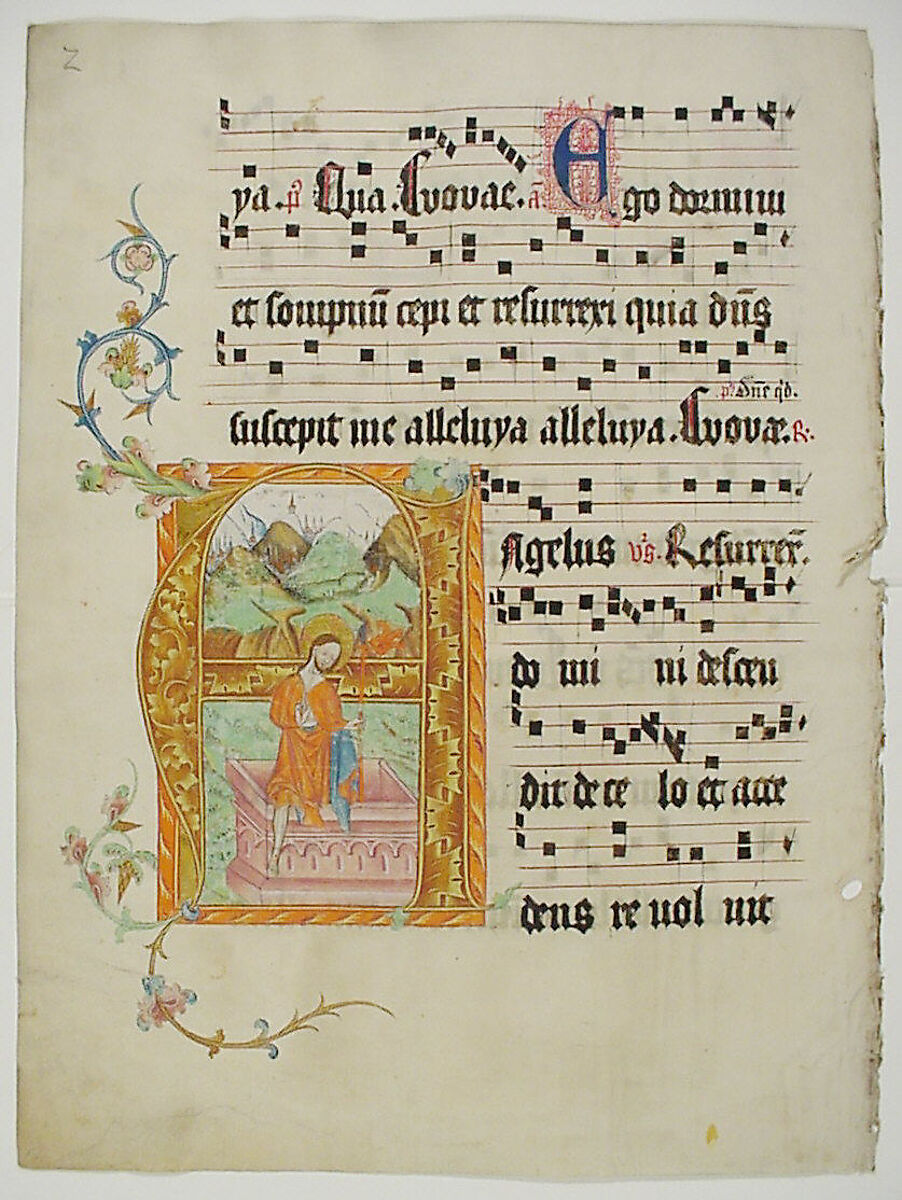 Z
ya. p̃ Qua. Euouae. ã Ego dormiui
et sompnū cepi et resurrexi quia dn̄s
p̃s Dn̄e qd.
suscepit me alleluya alleluya. Euouae. R.
Angelus v̄s. Resurrex̄.
do mi ni descen
dit de ce lo et acce
dens re uol uit